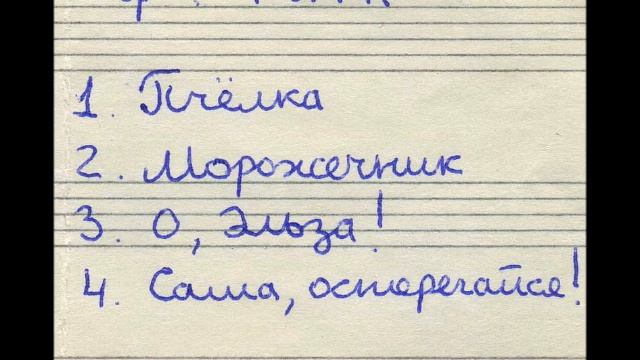 1. Пчёлка
2. Морожечник
3. О, Эльза!
4. Саша, остерегайся!